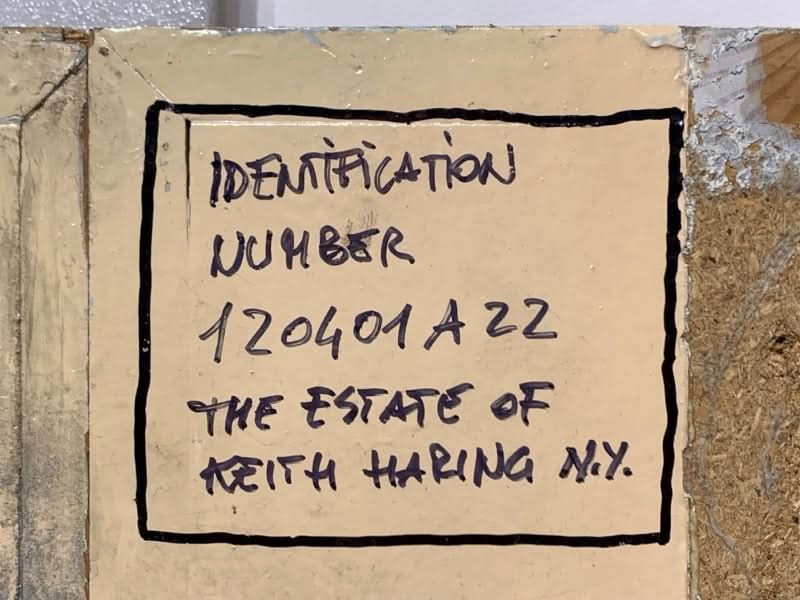 IDENTIFICATION
NUMBER
120401A22
THE ESTATE OF
KEITH HARING N.Y.